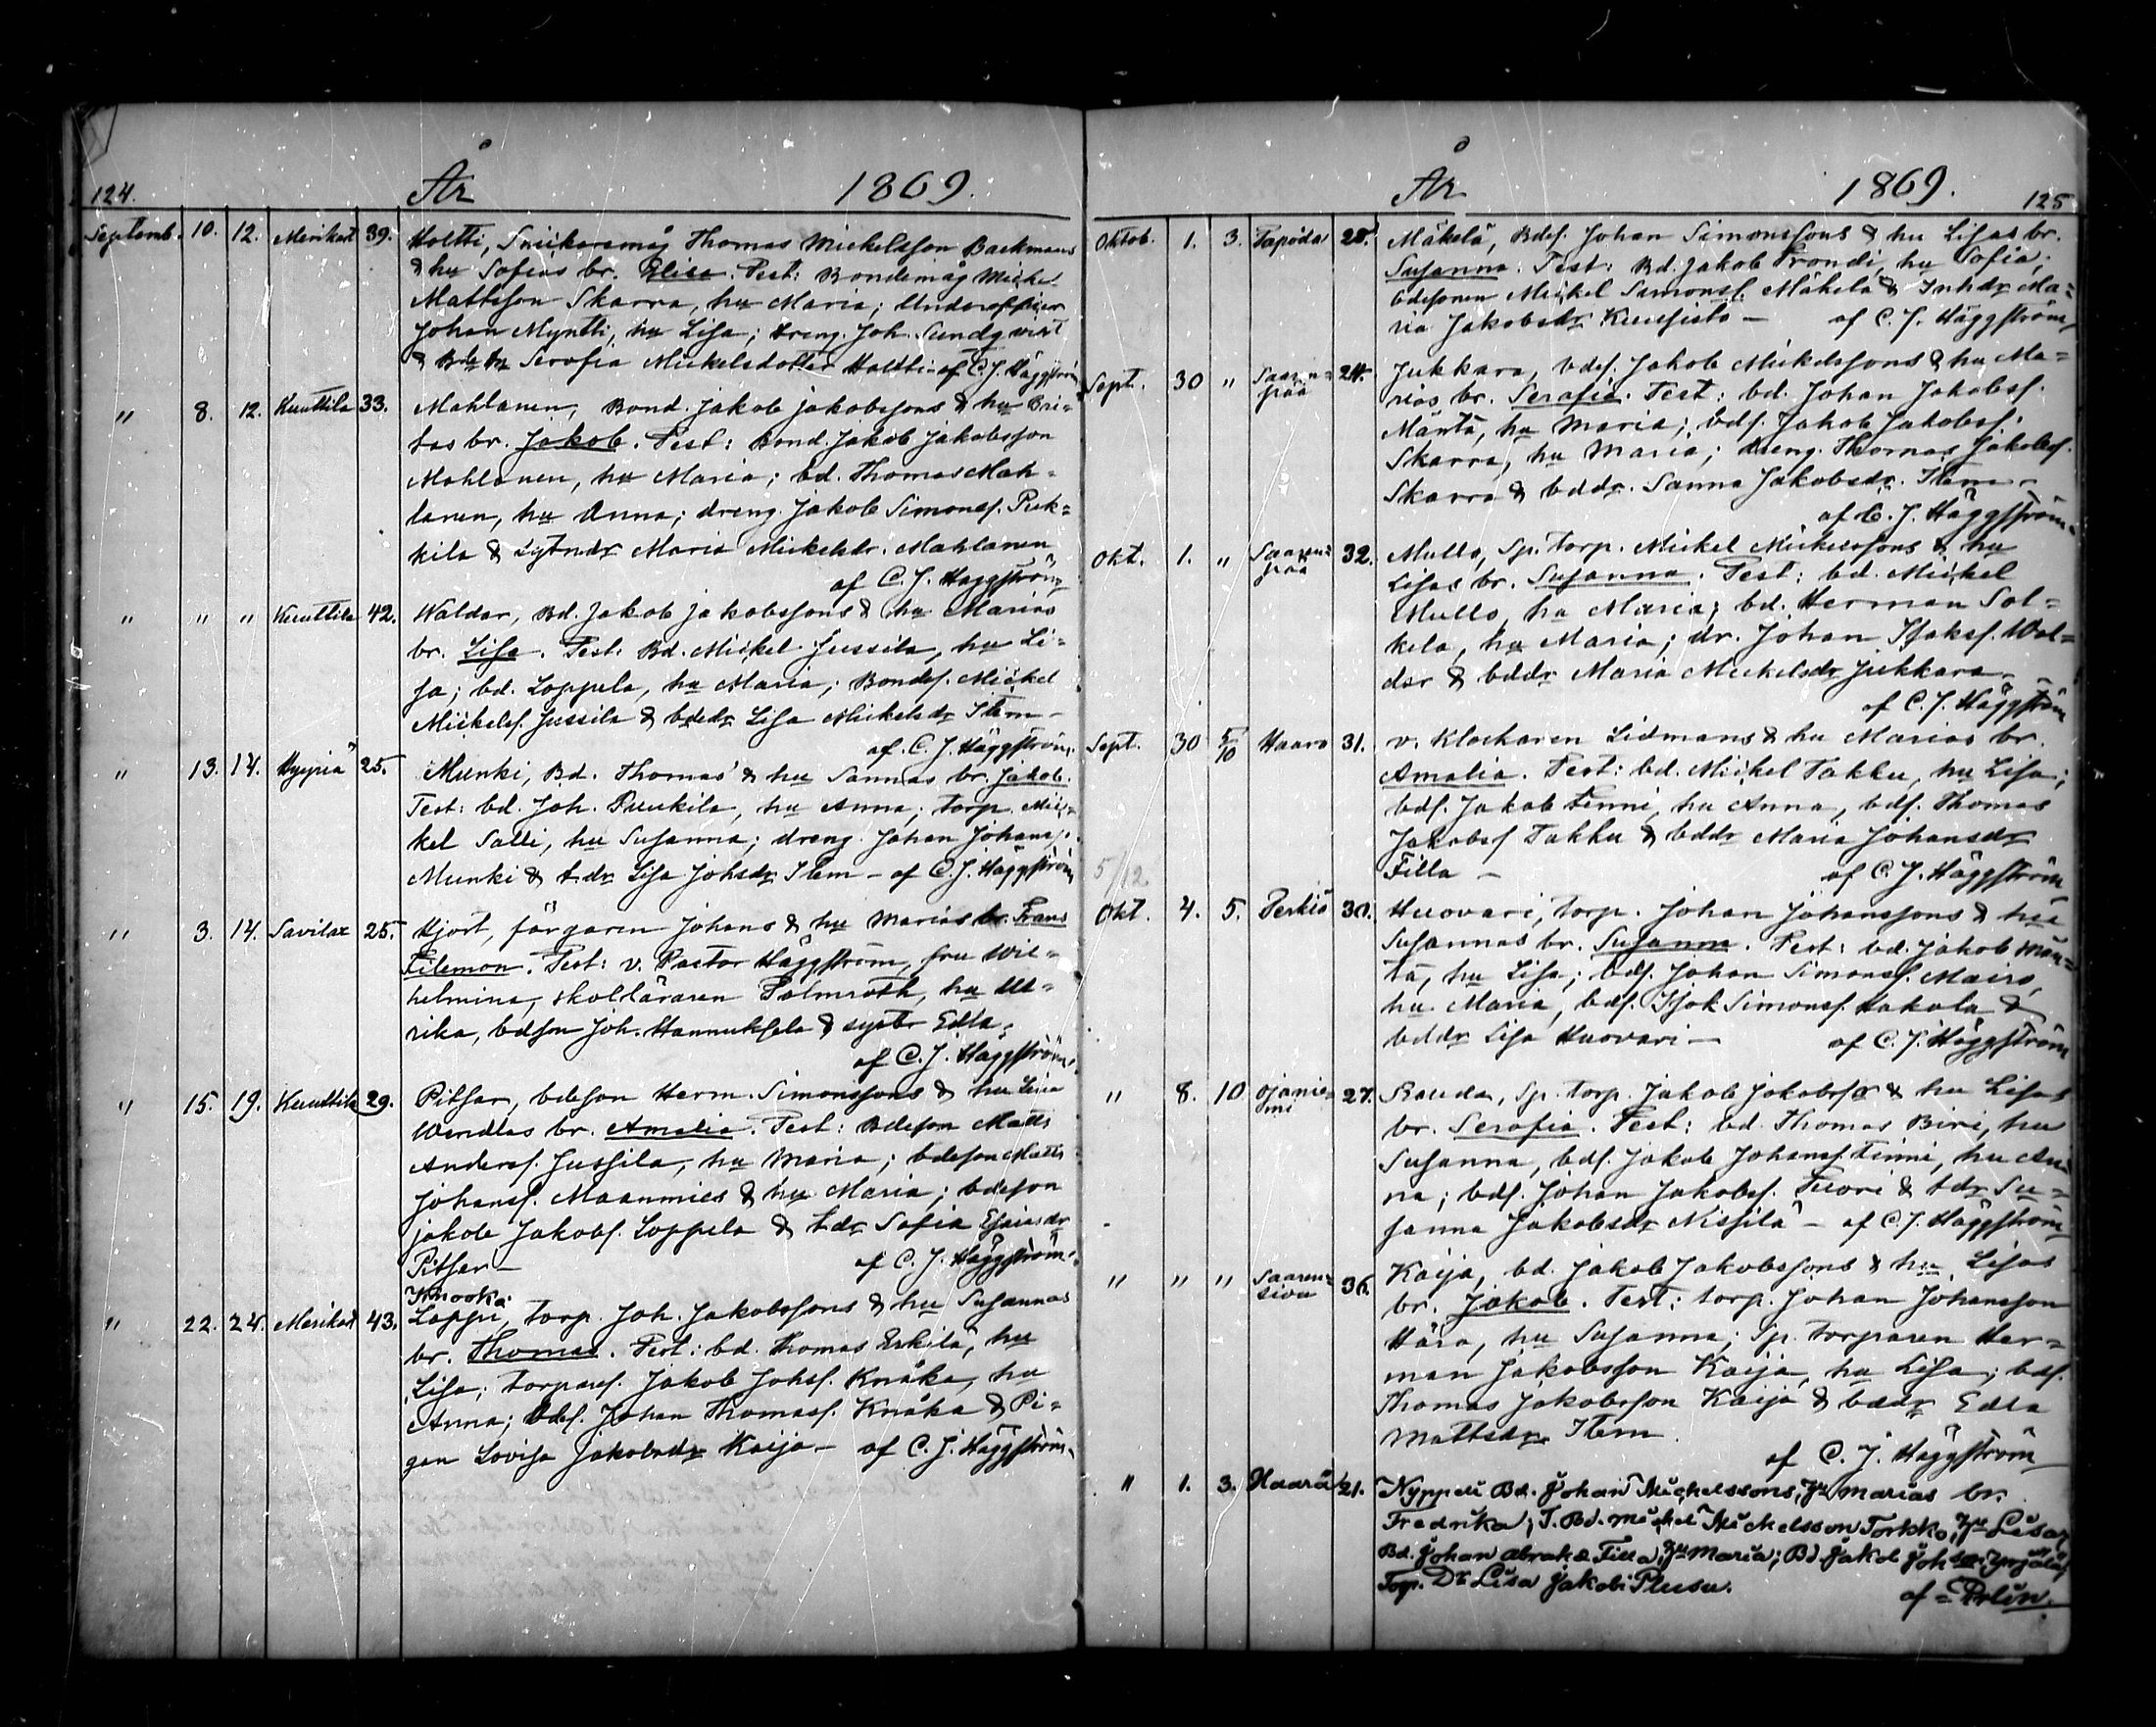 124. År 1869.
Septemb. 10. 12. Merikart 39. Holtti, Snickaremåg Thomas Mickelsson Backmans
& hu Sofias br. Elisa. Test: Bondemåg Mickel
Mattsson Skarra, hu Maria; Underofficer
Johan Myntti, hu Lisa; dreng Joh. Sundqvist
& Serafia Mickelsdotter Holtti - af C. J. Häggström
" 8. 12. Kuuttila 33. Mahlanen, Bond. Jakob Jakobssons & hu Bri-
tas br. Jakob. Test: Bond. Jakob Jakobsson
Mahlanen, hu Maria; bd. Thomas Mah-
lanen, hu Anna; dreng Jakob Simonss. Puk-
kila & Maria Mickelsdr. Mahlanen
af C. J. Häggström
" " " Kuuttila 42. Waldar, Bd. Jakob Jakobssons & hu Marias
br. Lisa. Test: Bd. Mickel Jussila, hu Li-
sa; bd. Loppela, hu Maria; Bondes. Mickel
Mickelss. Jussila & bddr Lisa Mickelsdr Item -
af C. J. Häggström.
" 13. 14. Hyypiä 25. Munki, Bd. Thomas' & hu Sannas br. Jakob.
Test: bd. Joh. Puukila, hu Anna; torp. Mic-
kel Salli, hu Susanna; dreng. Johan Johanss.
Munki & t.dr Lisa Johsdr Item - af C. J. Häggström
" 3. 14. Savilax 25. Hjort, färgaren Johans & hu Marias br. Frans
Filemon. Test: v. Pastor Häggström, fru Wil-
helmina, skolläraren Polmroth, hu Ul-
rika, bdeson Joh. Hannuksela & syster Edla -
af C. J. Häggström.
" 15. 19. Kuuttila 29. Pitsar, bdeson Herm. Simonssons & hu Lisa
Wendlas br. Amalia. Test: Bdeson Matts
Anderss. Jussila, hu Maria; bdeson Matts
Johanss. Maanmies & hu Maria; bdeson
Jakob Jakobs. Loppela & t.dr Sofia Esaiasdr
Pitsar - af C. J. Häggström.
Knooka.
" 22. 24. Merikart 43. Loppi, torp. Joh. Jakobssons & hu Susannas
br. Thomas. Test: bd. Thomas Erkilä, hu
Lisa; torpares. Jakob Johss. Knåka, hu
Anna; bdes. Johan Thomass. Knåka & Pi-
gan Lovisa Jakobsdr Kaija - af C. J. Häggström.
År 1869. 125
Oktob. 1. 3. Tapiola 28. Mäkelä, Bdes. Johan Simonssons & hu Lisas br.
Susanna. Test: Bd. Jakob Prondi, hu Sofia;
bdesonen Mickel Samonss. Mäkelä & Inhdr Ma-
ria Jakobsdr Kuusisto - af C. J. Häggström
Sept. 30 " Saaren-
pää 24. Jukkara, bdes. Jakob Mickelssons & hu Ma-
rias br. Serafia. Test: bd. Johan Jakobss.
Mäntä, hu Maria; bds. Jakob Jakobss.
Skarra, hu Maria; dreng. Thomas Jakobss.
Skarra & bddr. Sanna Jakobsdr. Item -
af C. J. Häggström.
Okt. 1. " Saaren-
pää 32. Mullo, Sp. torp. Mickel Mickelssons & hu
Lisas br. Susanna. Test: bd. Mickel
Mullo, hu Maria; bd. Herman Sol-
kela, hu Maria; dr. Johan Isakss. Wal-
dar & bddr Maria Mickelsdr Jukkara -
af C. J. Häggström
Sept. 30 5/10 Haaro 31. v. Klockaren Lidmans & hu Marias br.
Amalia. Test: bd. Mickel Takku, hu Lisa;
bds. Jakob Finni, hu Anna, bds. Thomas
Jakobss Takku & bddr Maria Johansdr
Filla - af C. J. Häggström
5/12
Okt. 4. 5. Perkiö 30. Huovari, torp. Johan Johanssons & hu
Susannas br. Susanna. Test: bd. Jakob Män-
tä, hu Lisa; bds. Johan Simonss. Mairo,
hu Maria, bds. Isak Simonss. Hakola &
bddr Lisa Huovari - af C. J. Häggström
" 8. 10 Ojanie-
mi 27. Rauda, Sp. torp. Jakob Jakobss & hu Lisas
br. Serafia. Test: bd. Thomas Biri, hu
Susanna, bds. Jakob Johanss. Finni, hu An-
na; bds. Johan Jakobss. Fuori & t.dr Su-
sanna Jakobsdr Nissilä - af C. J. Häggström
" " " Saaren-
sivu 36. Kaija, bd. Jakob Jakobssons & hu Lisas
br. Jakob. Test: torp. Johan Johansson
Hära, hu Susanna; Sp. torparen Her-
man Jakobsson Kaija, hu Lisa; bds.
Thomas Jakobsson Kaija & bddr Edla
Mattsdr Item.
af C. J. Häggström
" 1. 3. Haarå 21. Nyppeli Bd. Johan Michelssons, Hu Marias br.
Fredrika; T. Bd. Michel Mickelsson Torkko, Hu Lisa,
Bd. Johan Abrah. Filla, Hu Maria; Bd Jakob Johss.
Torp. Dr Lisa Jakobi Plusu.
af - Polin.